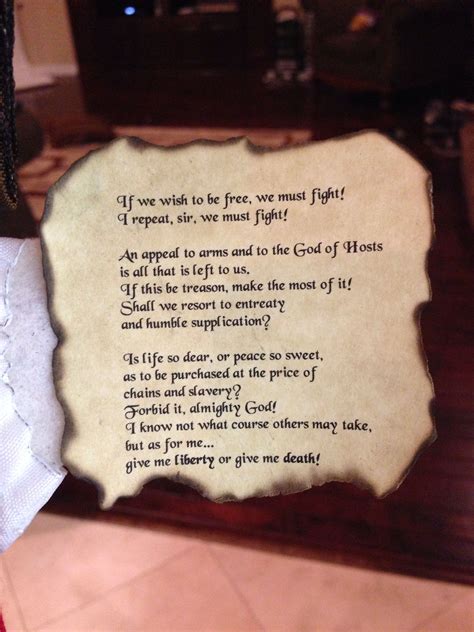 If we wish to be free, we must fight!
I repeat, sir, we must fight!
An appeal to arms and to the God of Hosts
is all that is left to us,
If this be treason, make the most of it!
Shall we resort to entreaty
and humble supplication?
Is life so dear, or peace so sweet,
as to be purchased at the price of
chains and slavery?
Forbid it, almighty God!
I know not what course others may take,
but as for me...
give me liberty or give me death!